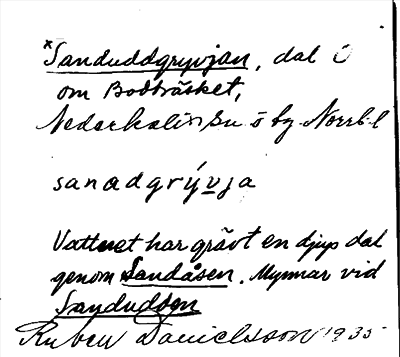 *Sanduddgryvjan, dal Ö
om Bodträsket,
Nederkalix sn ö by. Norrb. l
sanadgrývja
Vattnet har grävt en djup dal
genom Sandåsen. Mynnar vid
Sandudden
Ruben Danielsson 1935